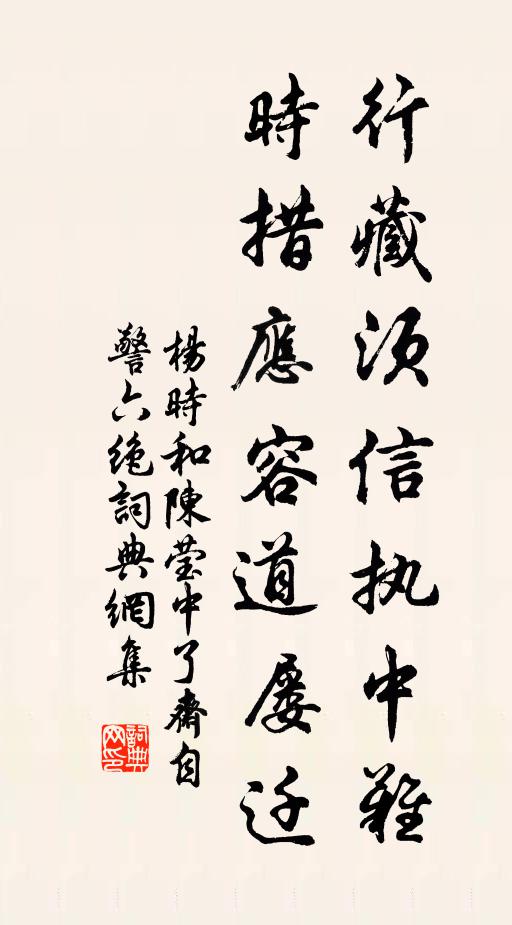 行藏須信执中難
時措應容道屡迁
楊時和陳莹中了齋自
警六绝詞典網集
詞典网印